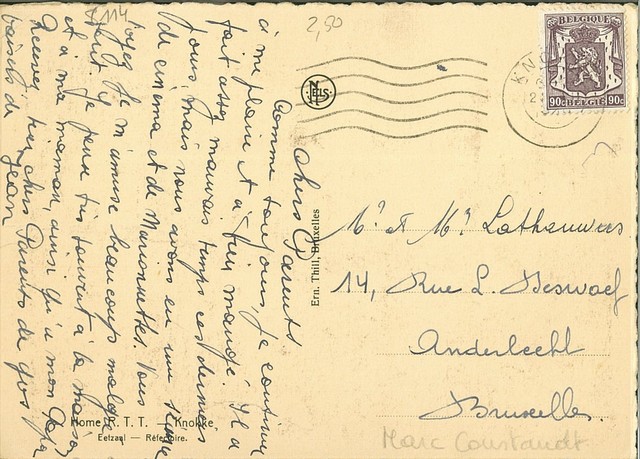 Chers Parents
Comme toujours, je continue
à me plaire et à bien mangé. Il a
fait assez mauvais temps ces derniers
jours, mais nous avons eu une séance
de cinéma et de Marionnettes. Vous
voyez je m'amuse beaucoup malgré
tout. Je pense très souvent à la maison
et à ma maman, ainsi qu'à mon Papa
Recevez, très chers Parents de gros
baisers de
Jean
Home R. T. T. — Knokke
Eetzaal — Réfectoire.
Ern. Thill, Bruxelles
NELS
2,50
114
BELGIQUE
90c BELGIË 90c
KNO
Mr et Me Lathouwers
14, Rue L. Deswaef
Anderlecht
Bruxelles.
Marc Constandt